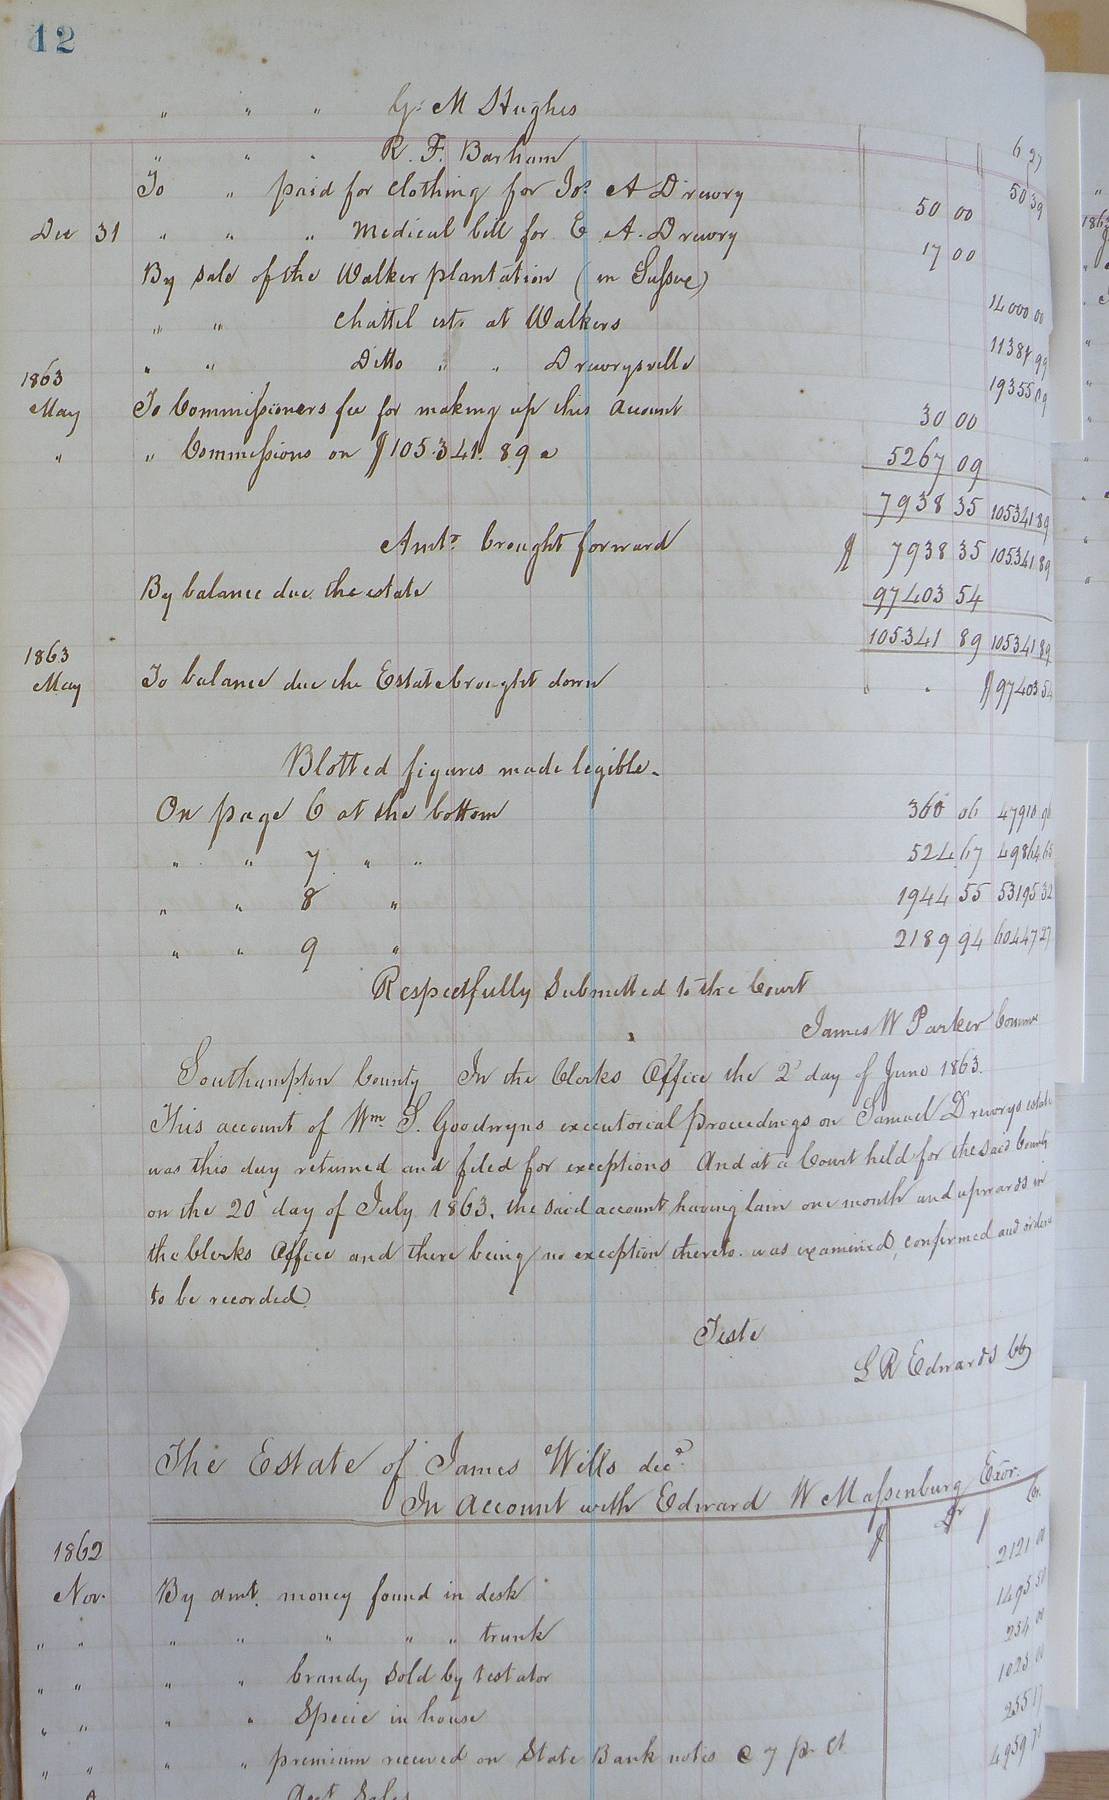 12
" " " G. M Hughes 6 27
" " " R. F. Barham 50 39
To " paid for clothing for Jos A Drewry 50 00
Dec 31 " " " Medical bill for E A. Drewry 17 00
By sale of the Walker plantation (in Sussex) 14000 00
" " Chattel est. at Walkers
" " Ditto " " Drewrysville 19355 09
1863
May To Commissioners fee for making up this account 30 00
" " Commissions on $105.341.89 5267 09
7938 35 105341 89
Amt. brought forward $ 7938 35 105341 89
By balance due the estate 97403 54
105341 89 105341 89
1863
May To balance due the Estate brought down $97403 54
Blotted figures made legible.
On page 6 at the bottom 368 06
" " 7 " " 524 67
" " 8 " 1944 55 53195 32
" " 9 " 2189 94 60447 27
Respectfully Submitted to the Court
James W Parker Commr
Southampton County In the Clerks Office the 2d day of June 1863.
This account of Wm. S. Goodwyns executorial proceedings on Samuel Drewrys estate
was this day returned and filed for exceptions And at a Court held for the said County
on the 20 day of July 1863, the said account having lain one month and upwards in
the Clerks Office and there being no exception thereto was examined, confirmed and ordered
to be recorded
Teste
L R Edwards CC
The Estate of James Wills decd.
In account with Edward W Massenburg Exor.
1862 $ Dr $ Cr.
Nov. By amt. money found in desk
" " " " " " " trunk
" " " " brandy sold by testator
" " " " Specie in house
" " " " premium received on State Bank notes @ 7 pr ct
Acct Sales